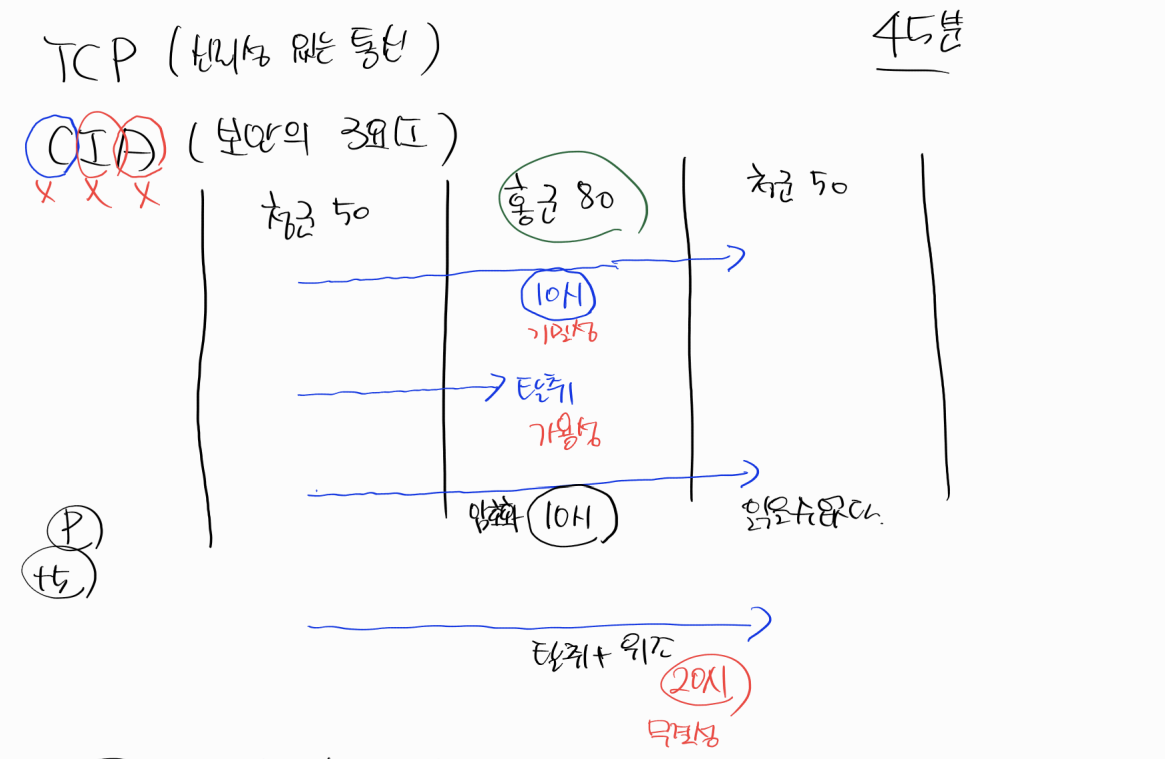 TCP (신뢰성 있는 통신)
45분
CIA (보안의 3요소)
X X X
청군 50
홍군 80
청군 50
10시
기밀성
탈취
가용성
암호화 10시
읽을 수 없다.
P
+5
탈취 + 위조
20시
무결성